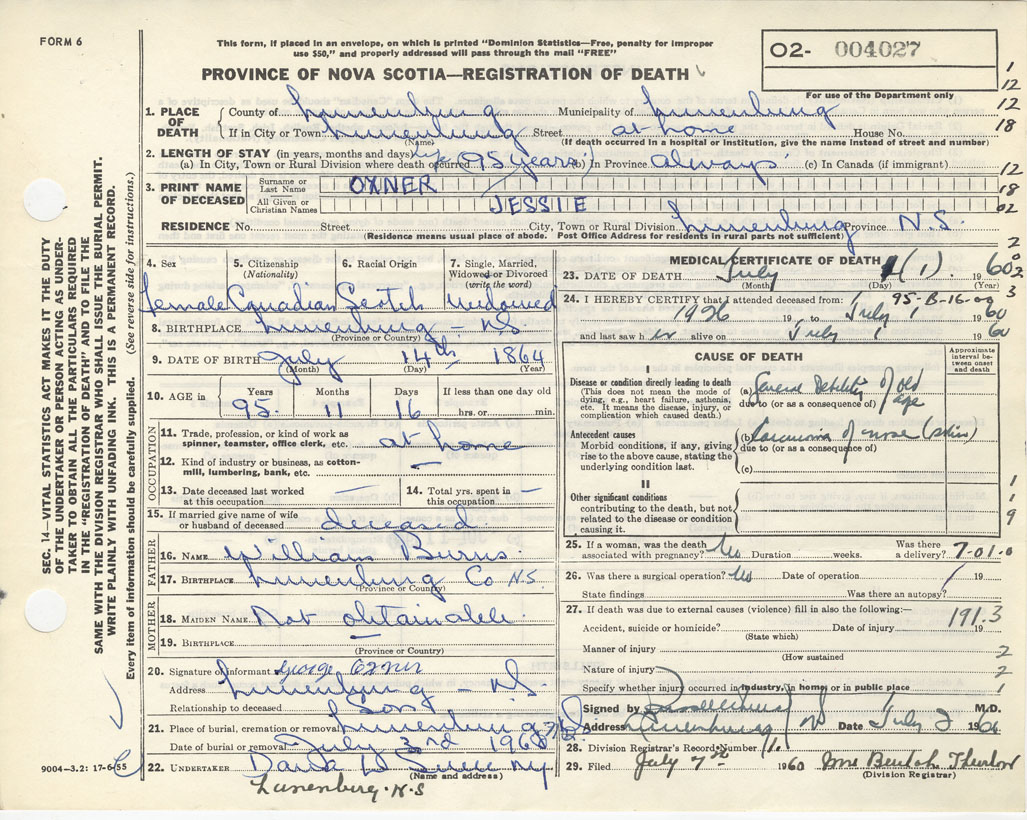 FORM 6
This form, if placed in an envelope, on which is printed "Dominion Statistics—Free, penalty for improper
use $50," and properly addressed will pass through the mail "FREE"
O2- 004027
For use of the Department only
PROVINCE OF NOVA SCOTIA—REGISTRATION OF DEATH
1
12
12
18
1. PLACE OF DEATH
County of Lunenburg Municipality of Lunenburg
If in City or Town Lunenburg Street at home House No.
(Name) (If death occurred in a hospital or institution, give the name instead of street and number)
2. LENGTH OF STAY (in years, months and days)
(a) In City, Town or Rural Division where death occurred Life 95 years (b) In Province always (c) In Canada (if immigrant)
12
18
02
3. PRINT NAME OF DECEASED
Surname or Last Name OXNER
All Given or Christian Names JESSIE
RESIDENCE No. Street City, Town or Rural Division Lunenburg Province N.S.
(Residence means usual place of abode. Post Office Address for residents in rural parts not sufficient)
2
0
2
3
4. Sex
female
5. Citizenship
(Nationality)
Canadian
6. Racial Origin
Scotch
7. Single, Married, Widowed or Divorced
(write the word)
Widowed
8. BIRTHPLACE Lunenburg - N.S.
(Province or Country)
9. DATE OF BIRTH July 14th 1864
(Month) (Day) (Year)
10. AGE in
Years 95
Months 11
Days 16
If less than one day old
hrs. or min.
OCCUPATION
11. Trade, profession, or kind of work as spinner, teamster, office clerk, etc. at home
12. Kind of industry or business, as cotton-mill, lumbering, bank, etc. —
13. Date deceased last worked at this occupation —
14. Total yrs. spent in this occupation —
15. If married give name of wife or husband of deceased deceased
FATHER
16. NAME William Burns
17. BIRTHPLACE Lunenburg Co N.S
(Province or Country)
MOTHER
18. MAIDEN NAME Not obtainable
19. BIRTHPLACE —
(Province or Country)
20. Signature of informant George Oxner
Address Lunenburg - N.S.
Relationship to deceased Son
21. Place of burial, cremation or removal Lunenburg N.S.
Date of burial or removal July 3rd 1960
22. UNDERTAKER
(Name and address)
Lunenburg. N.S
MEDICAL CERTIFICATE OF DEATH
23. DATE OF DEATH July 1 (1) 1960
(Month) (Day)
24. I HEREBY CERTIFY that I attended deceased from: 95-B-16-00
1926 19 to July 1 1960
and last saw h er alive on July 1 1960
CAUSE OF DEATH
Approximate interval between onset and death
I
Disease or condition directly leading to death
(This does not mean the mode of dying, e.g., heart failure, asthenia, etc. It means the disease, injury, or complication which caused death.)
(a) General Debility of old age
due to (or as a consequence of)
Antecedent causes
Morbid conditions, if any, giving rise to the above cause, stating the underlying condition last.
(b) Carcinoma of nose (skin)
due to (or as a consequence of)
(c)
II
Other significant conditions
contributing to the death, but not related to the disease or condition causing it.
1
1
9
25. If a woman, was the death associated with pregnancy? No Duration weeks. Was there a delivery?
7-01.0
26. Was there a surgical operation? No Date of operation 19
State findings Was there an autopsy?
27. If death was due to external causes (violence) fill in also the following:—
191.3
Accident, suicide or homicide? Date of injury 19
(State which)
Manner of injury 2
(How sustained
Nature of injury 2
Specify whether injury occurred in industry, in home, or in public place 1
Signed by M.D.
Address Lunenburg NS Date July 2 1960
28. Division Registrar's Record Number 71.
29. Filed July 7th 1960 Mrs Beulah
(Division Registrar)
SEC. 14—VITAL STATISTICS ACT MAKES IT THE DUTY
OF THE UNDERTAKER OR PERSON ACTING AS UNDER-
TAKER TO OBTAIN ALL THE PARTICULARS REQUIRED
IN THE "REGISTRATION OF DEATH" AND FILE THE
SAME WITH THE DIVISION REGISTRAR WHO SHALL ISSUE THE BURIAL PERMIT.
WRITE PLAINLY WITH UNFADING INK. THIS IS A PERMANENT RECORD.
Every item of information should be carefully supplied. (See reverse side for instructions.)
9004—3.2: 17-6-55